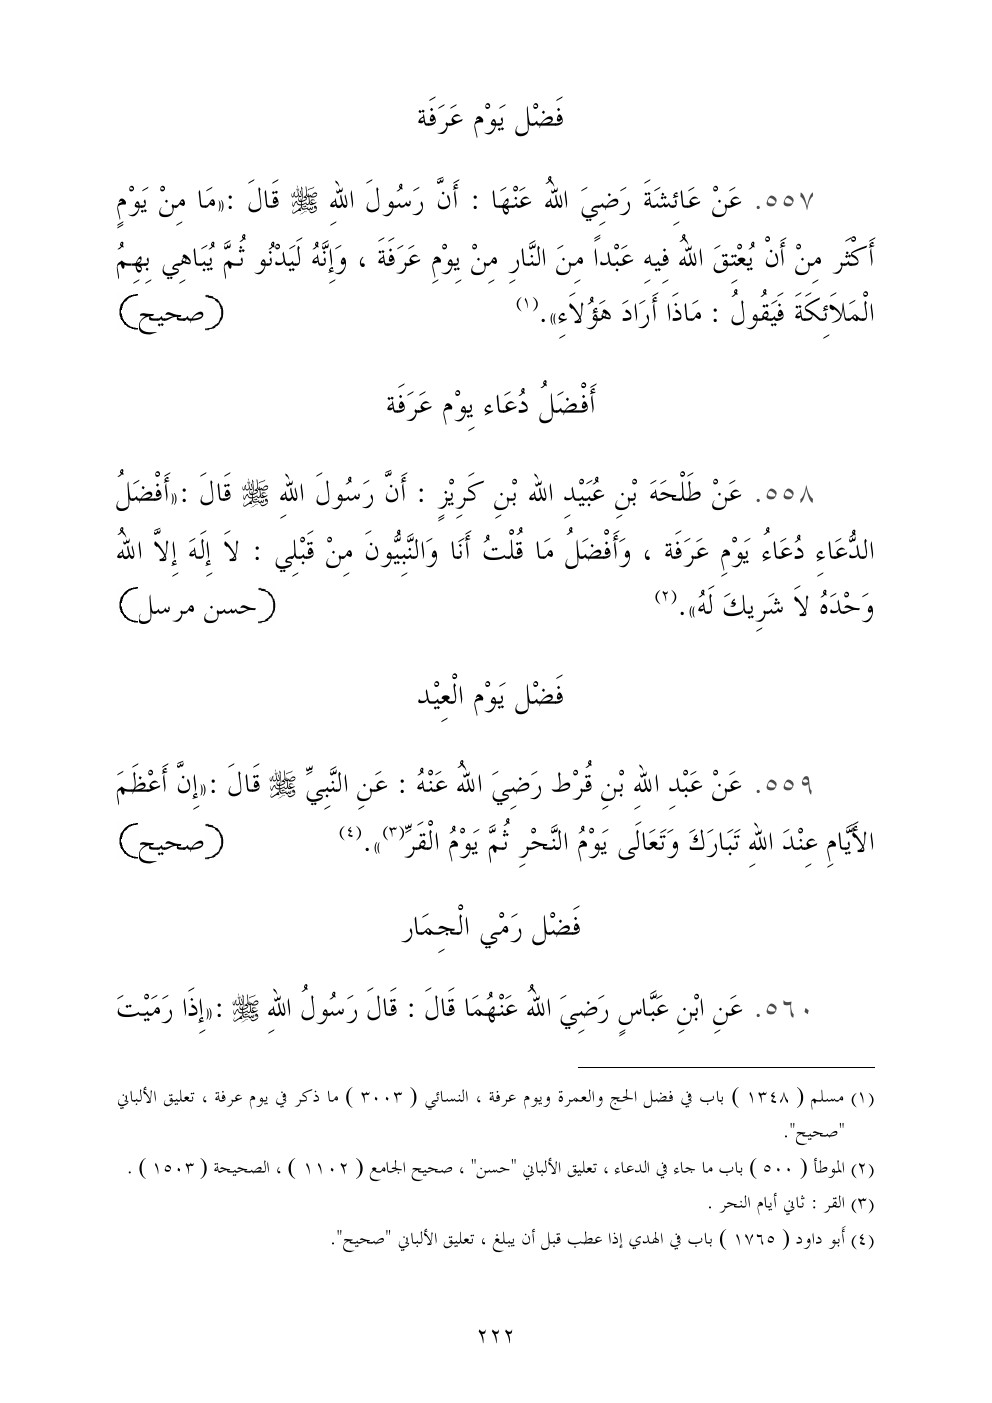 فَضْل يَوْم عَرَفَة
٥٥٧. عَنْ عَائِشَةَ رَضِيَ اللهُ عَنْهَا : أَنَّ رَسُولَ اللهِ ﷺ قَالَ :«مَا مِنْ يَوْمٍ
أَكْثَر مِنْ أَنْ يُعْتِقَ اللهُ فِيهِ عَبْداً مِنَ النَّارِ مِنْ يِوْمِ عَرَفَةَ ، وَإِنَّهُ لَيَدْنُو ثُمَّ يُبَاهِي بِهِمُ
الْمَلاَئِكَةَ فَيَقُولُ : مَاذَا أَرَادَ هَؤُلاَءِ».(١) (صحيح)
أَفْضَلُ دُعَاء يِوْم عَرَفَة
٥٥٨. عَنْ طَلْحَةَ بْنِ عُبَيْدِ الله بْنِ كَرِيْزٍ : أَنَّ رَسُولَ اللهِ ﷺ قَالَ :«أَفْضَلُ
الدُّعَاءِ دُعَاءُ يَوْمِ عَرَفَة ، وَأَفْضَلُ مَا قُلْتُ أَنَا وَالنَّبِيُّونَ مِنْ قَبْلِي : لاَ إِلَهَ إِلاَّ اللهُ
وَحْدَهُ لاَ شَرِيكَ لَهُ».(٢) (حسن مرسل)
فَضْل يَوْم الْعِيْد
٥٥٩. عَنْ عَبْدِ اللهِ بْنِ قُرْط رَضِيَ اللهُ عَنْهُ : عَنِ النَّبِيِّ ﷺ قَالَ :«إِنَّ أَعْظَمَ
الأَيَّامِ عِنْدَ اللهِ تَبَارَكَ وَتَعَالَى يَوْمُ النَّحْرِ ثُمَّ يَوْمُ الْقَرِّ(٣)».(٤) (صحيح)
فَضْل رَمْي الْجِمَار
٥٦٠. عَنِ ابْنِ عَبَّاسٍ رَضِيَ اللهُ عَنْهُمَا قَالَ : قَالَ رَسُولُ اللهِ ﷺ :«إِذَا رَمَيْتَ
(١) مسلم ( ١٣٤٨ ) باب في فضل الحج والعمرة ويوم عرفة ، النسائي ( ٣٠٠٣ ) ما ذكر في يوم عرفة ، تعليق الألباني
"صحيح".
(٢) الموطأ ( ٥٠٠ ) باب ما جاء في الدعاء ، تعليق الألباني "حسن" ، صحيح الجامع ( ١١٠٢ ) ، الصحيحة ( ١٥٠٣ ) .
(٣) القر : ثاني أيام النحر .
(٤) أَبو داود ( ١٧٦٥ ) باب في الهدي إذا عطب قبل أن يبلغ ، تعليق الألباني "صحيح".
٢٢٢